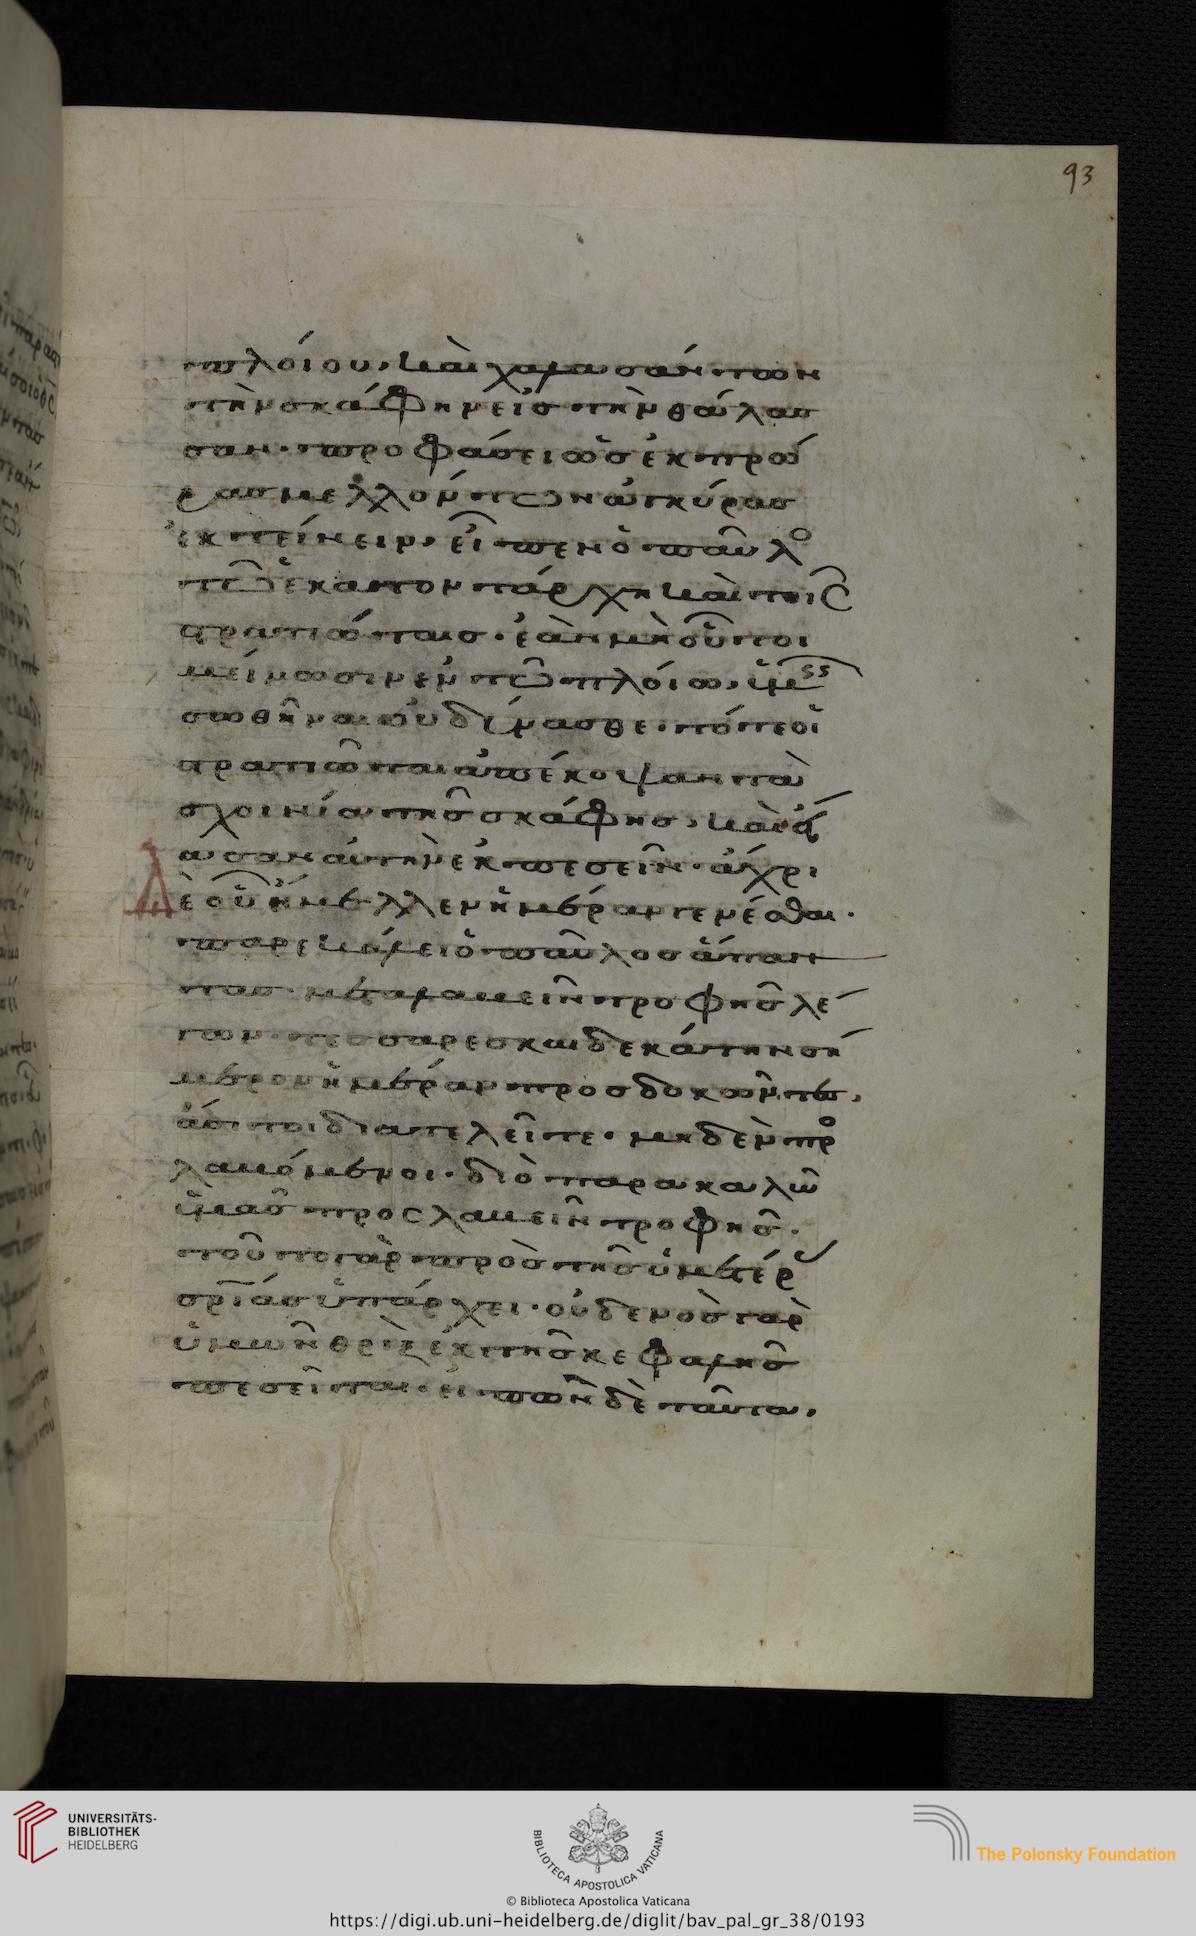 93
πλοίου, καὶ χαλασάντων
τὴν σκάφην εἰς τὴν θάλασ
σαν· προφάσει ὡς ἐκ πρώ
ρας μελλόντων ἀγκύρας
ἐκτείνειν, εἶπεν ὁ παῦλο
τῶ ἑκατοντάρχη καὶ τοῖς
στρατιώταις· ἐὰν μὴ οὗτοι
μείνωσιν ἐν τῶ πλοίω, ὑμεῖς
σωθῆναι οὐ δύνασθε· τότε οἱ
στρατιῶται ἀπέκοψαν τὰ
σχοινία τῆς σκάφης, καὶ εἴ
ασαν αὐτὴν ἐκπεσεῖν· ἄχρι
Δὲ οὗ ἤμελλεν ἡμέραν γενέσθαι·
παρεκάλει ὁ παῦλος ἅπαν
τας· μεταλαβεῖν τροφῆς λέ
γων· τεσσαρεσκαιδεκάτην σή
μερον ἡμέραν προσδοκῶντες,
ἄσιτοι διατελεῖτε· μηδὲν προσ
λαβόμενοι· διὸ παρακαλῶ
ὑμᾶς προσλαβεῖν τροφῆς·
τοῦτο γὰρ πρὸς τῆς ὑμετέρ
σρίας ὑπάρχει· οὐδενὸς γὰρ
ὑμῶν θρὶξ ἐκ τῆς κεφαλῆς
πεσεῖται· εἰπὼν δὲ ταῦτα,
UNIVERSITÄTS-
BIBLIOTHEK
HEIDELBERG
BIBLIOTECA APOSTOLICA VATICANA
The Polonsky Foundation
© Biblioteca Apostolica Vaticana
https://digi.ub.uni-heidelberg.de/diglit/bav_pal_gr_38/0193